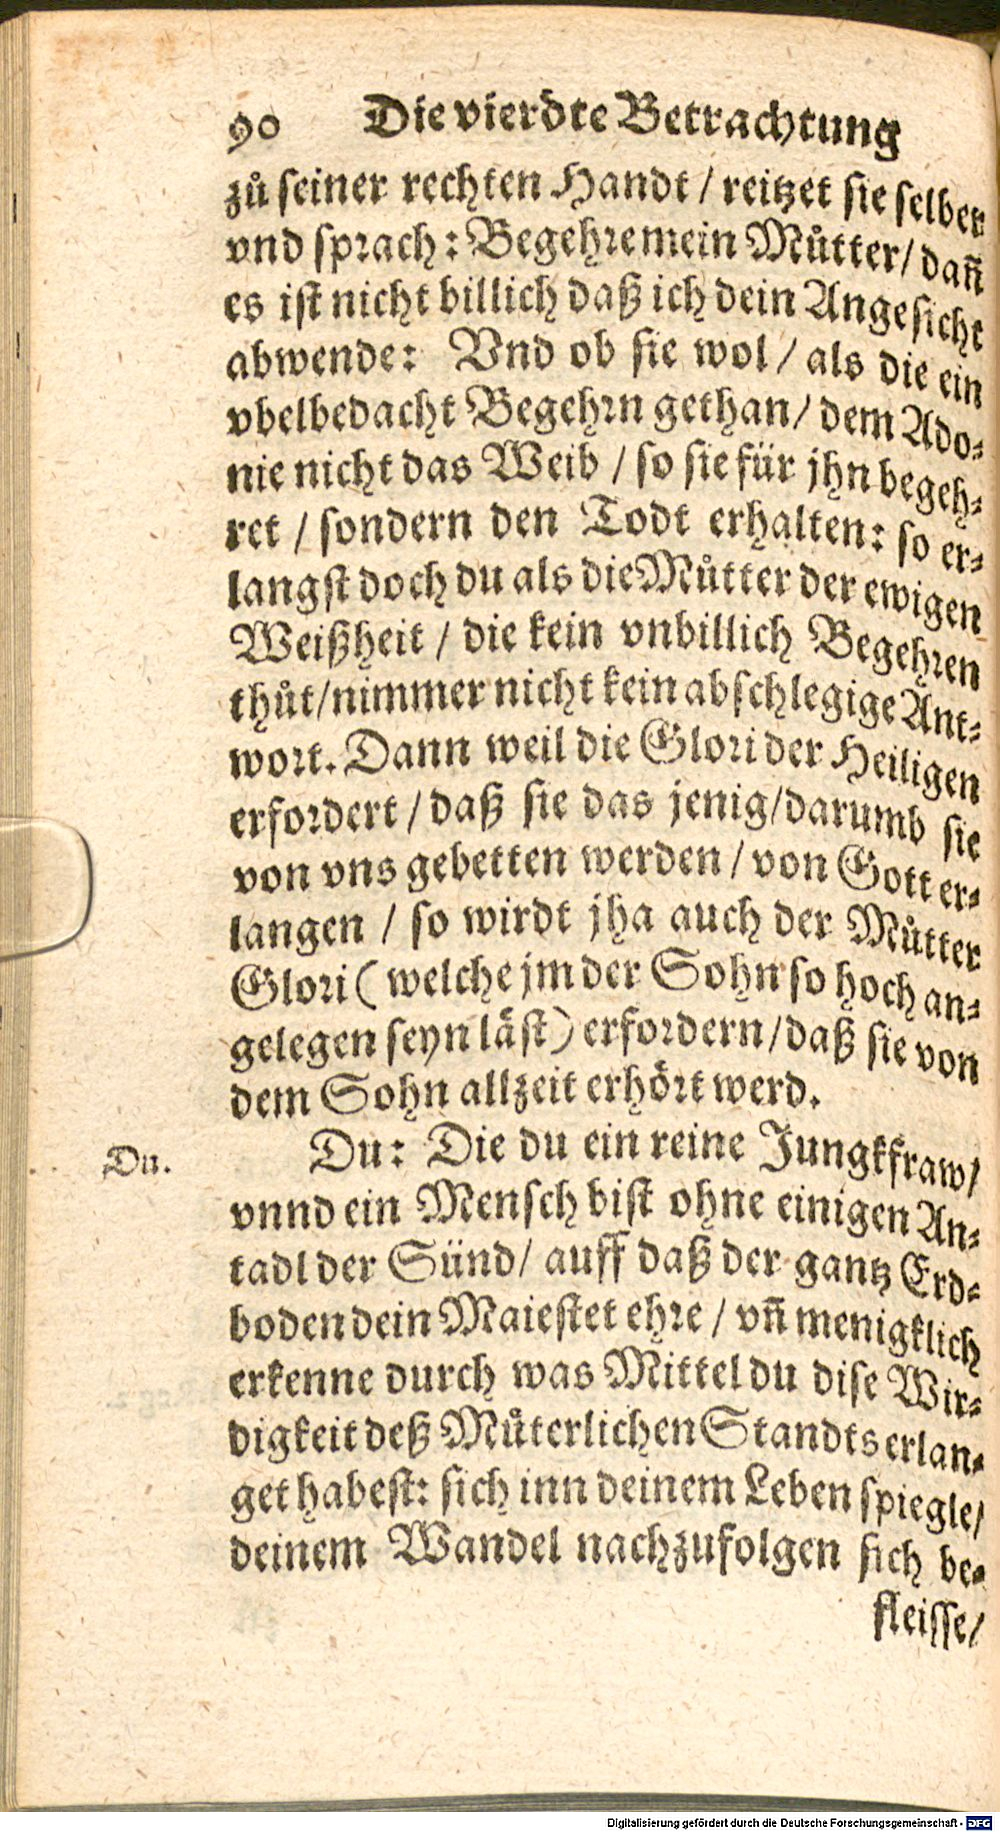 90 Die vierdte Betrachtung
zů seiner rechten Handt / reitzet sie selber
vnd sprach: Begehre mein Můtter/ dañ
es ist nicht billich daß ich dein Angesicht
abwende: Vnd ob sie wol / als die ein
vbelbedacht Begehrn gethan/ dem Ado⸗
nie nicht das Weib / so sie für jhn begeh⸗
ret / sondern den Todt erhalten: so er⸗
langst doch du als die Můtter der ewigen
Weißheit / die kein vnbillich Begehren
thůt/nimmer nicht kein abschlegige Ant⸗
wort. Dann weil die Glori der Heiligen
erfordert / daß sie das jenig/darumb sie
von vns gebetten werden / von Gott er⸗
langen / so wirdt jha auch der Můtter
Glori ( welche jm der Sohn so hoch an⸗
gelegen seyn läst) erfordern/daß sie von
dem Sohn allzeit erhört werd.
Du. Du: Die du ein reine Jungkfraw/
vnnd ein Mensch bist ohne einigen An⸗
tadl der Sünd/ auff daß der gantz Erd⸗
boden dein Maiestet ehre / vñ menigklich
erkenne durch was Mittel du dise Wir⸗
digkeit deß Můterlichen Standts erlan⸗
get habest: sich inn deinem Leben spiegle/
deinem Wandel nachzufolgen sich be⸗
fleisse/
Digitalisierung gefördert durch die Deutsche Forschungsgemeinschaft - DFG